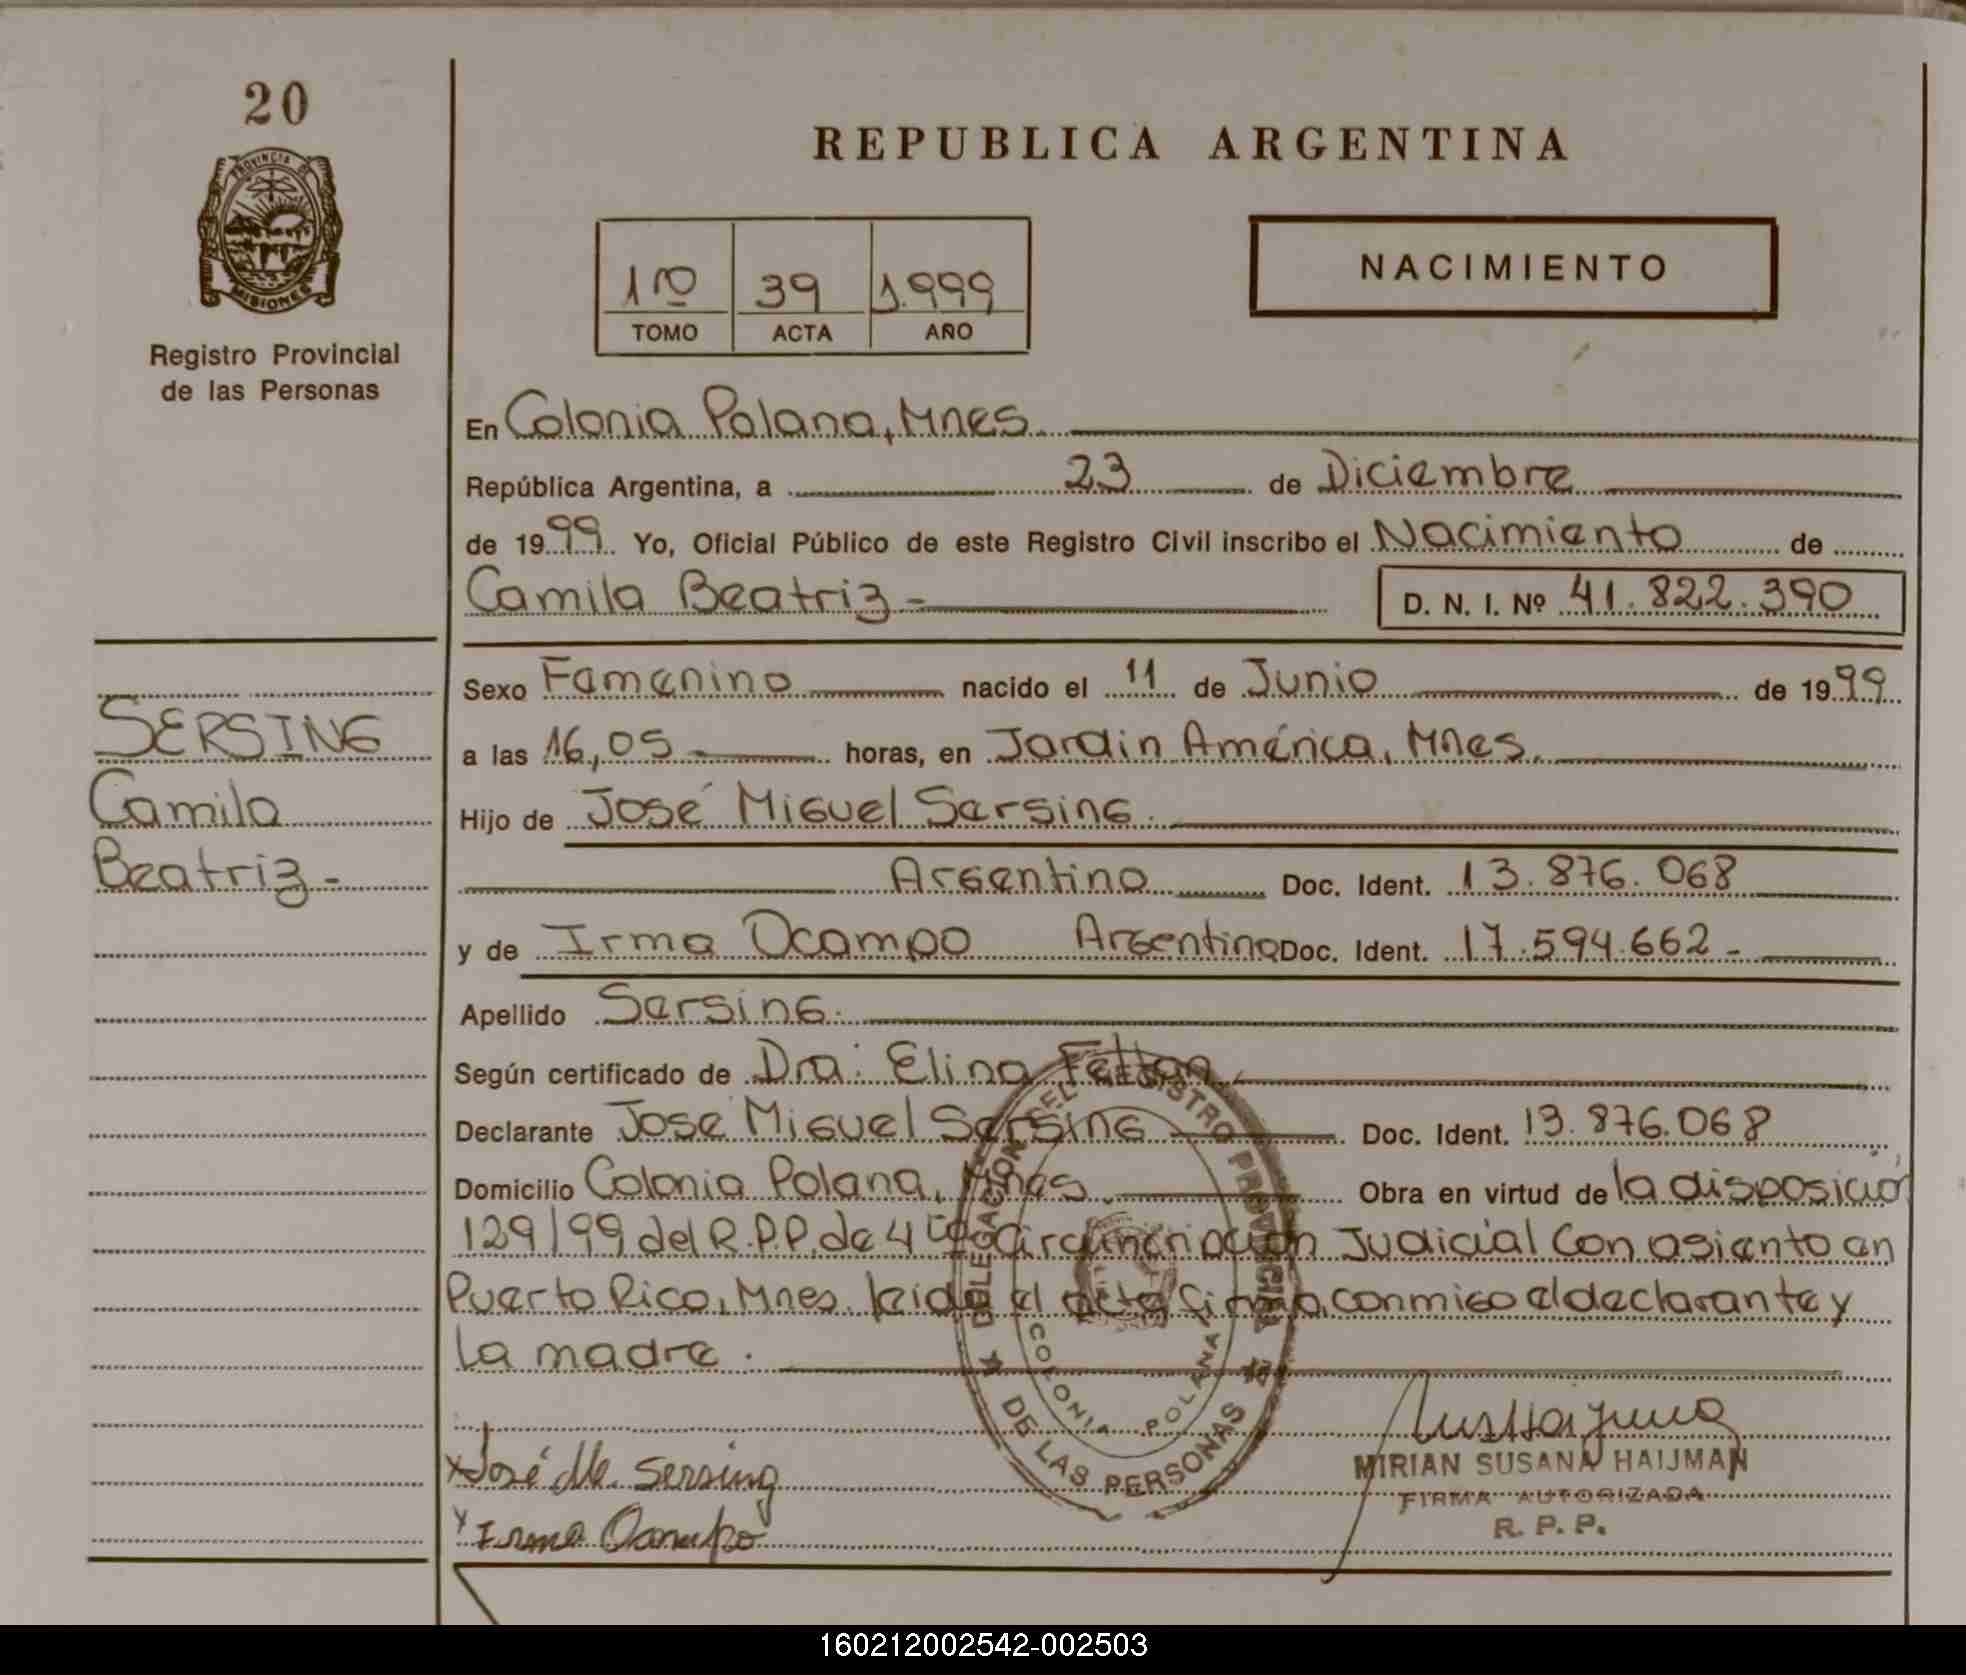 20
REPUBLICA ARGENTINA
PROVINCIA DE
MISIONES
Registro Provincial
de las Personas
1ro 39 1.999
TOMO ACTA AÑO
NACIMIENTO
En Colonia Polana, Mnes.
República Argentina, a 23 de Diciembre
de 1999 Yo, Oficial Público de este Registro Civil inscribo el Nacimiento de
Camila Beatriz - D. N. I. Nº 41.822.390
SERSING
Camila
Beatriz -
Sexo Femenino nacido el 11 de Junio de 1999
a las 16,05 horas, en Jardin América, Mnes.
Hijo de José Miguel Sersing.
Argentino Doc. Ident. 13.876.068
y de Irma Ocampo Argentina Doc. Ident. 17.594.662 -
Apellido Sersing.
Según certificado de Dra. Elina
Declarante José Miguel Sersing Doc. Ident. 13.876.068
Domicilio Colonia Polana, Mnes. Obra en virtud de la disposición
129/99 del R.P.P. de 4ta Judicial Con asiento en
Puerto Rico, Mnes. leida el acta firma, conmigo el declarante y
la madre.
DELEGACION DEL REGISTRO PROVINCIAL
DE LAS PERSONAS
COLONIA POLANA
José M. Sersing
Irma Ocampo
MIRIAN SUSANA HAIJMAN
FIRMA AUTORIZADA
R. P. P.
160212002542-002503